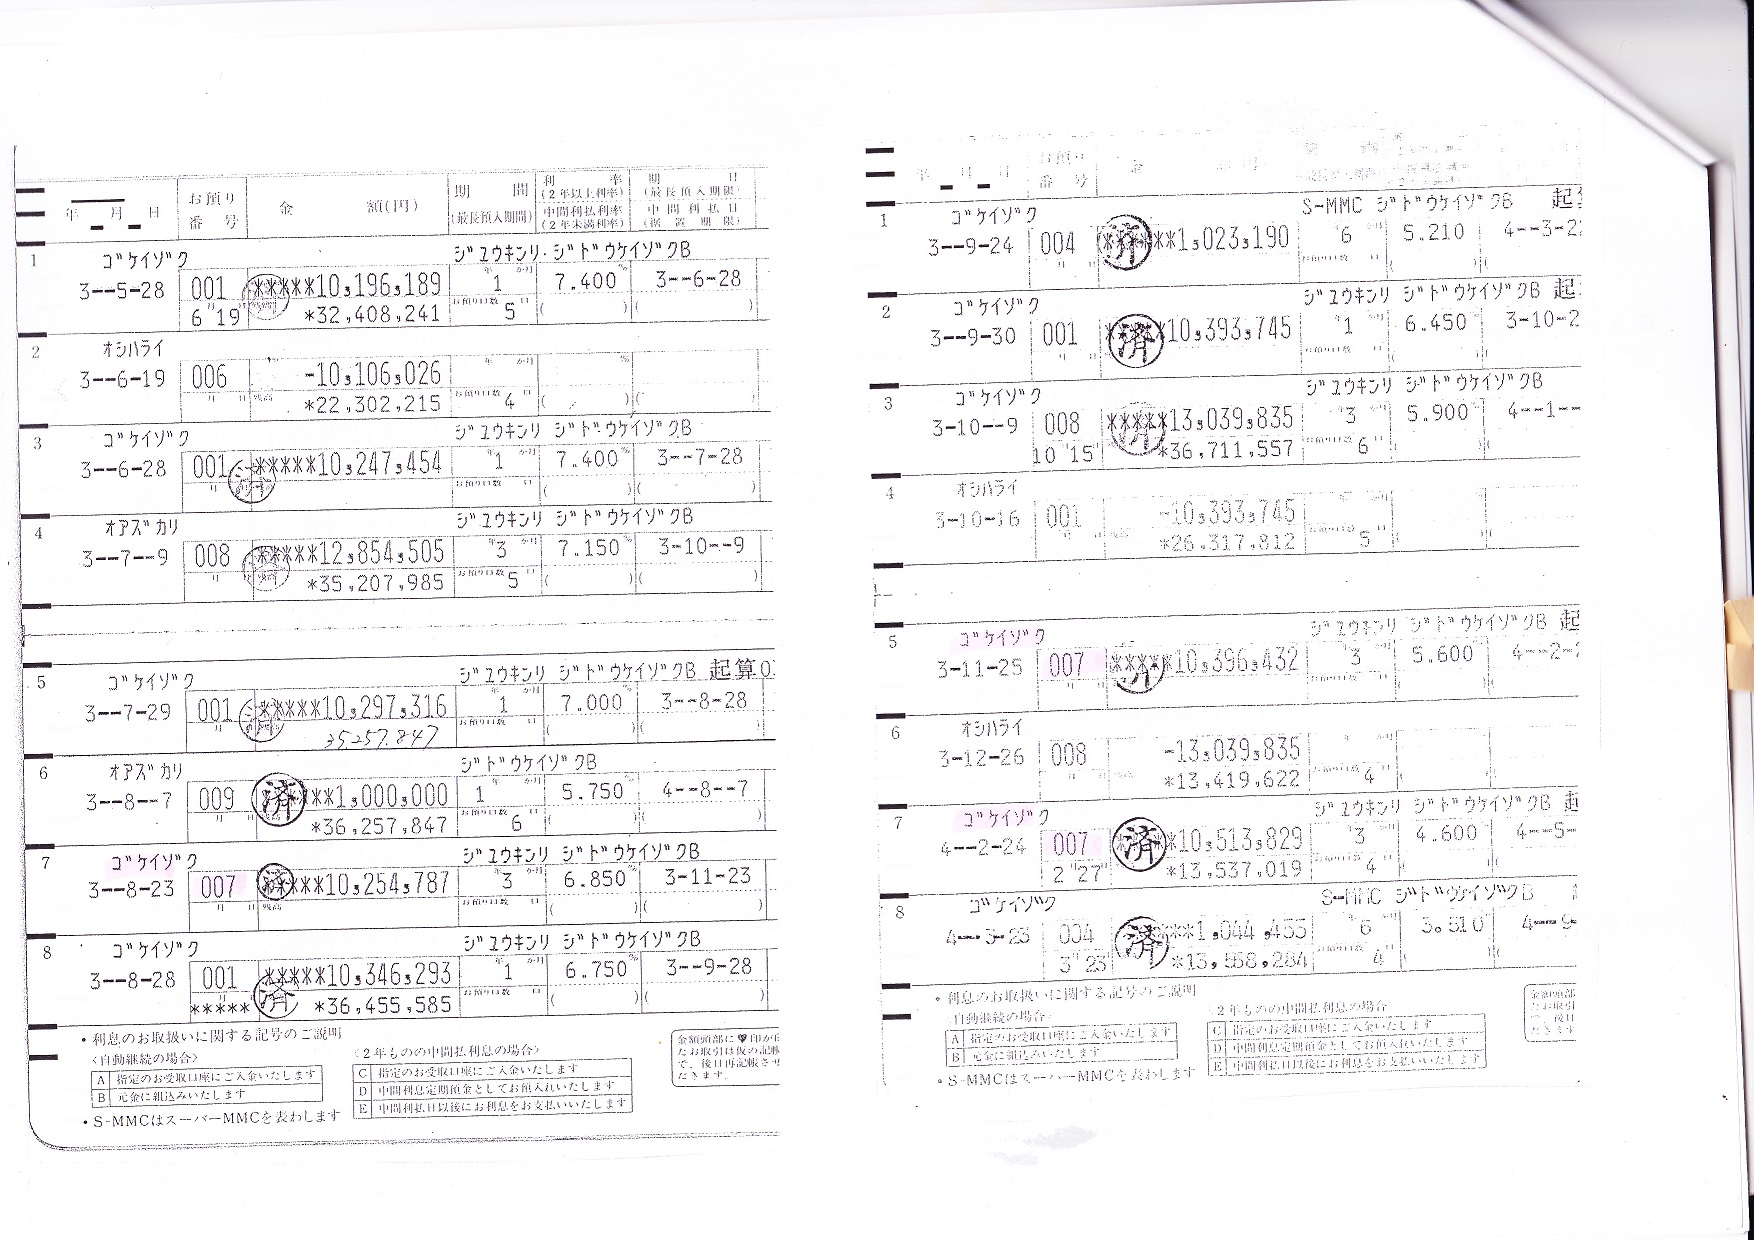 年 月 日 お預り番号 金 額(円) 期 間 (最長預入期間) 利 率 (2年以上利率) 中間利払利率 (2年未満利率) 期 日 (最長預入期限) 中間利払日 (据置期限)
1 ゴケイゾク ジユウキンリ ジドウケイゾクB
3--5-28 001 *****10,196,189 1 7.400 3--6-28
6 19 *32,408,241 5
2 オシハライ
3--6-19 006 -10,106,026
*22,302,215 4
3 ゴケイゾク ジユウキンリ ジドウケイゾクB
3--6-28 001 *****10,247,454 1 7.400 3--7-28
4 オアズカリ ジユウキンリ ジドウケイゾクB
3--7--9 008 *****12,854,505 3 7.150 3-10--9
*35,207,985 5
5 ゴケイゾク ジユウキンリ ジドウケイゾクB 起算
3--7-29 001 *****10,297,316 1 7.000 3--8-28
35257.847
6 オアズカリ ジドウケイゾクB
3--8--7 009 済 **1,000,000 1 5.750 4--8--7
*36,257,847 6
7 ゴケイゾク ジユウキンリ ジドウケイゾクB
3--8-23 007 済 ***10,254,787 3 6.850 3-11-23
8 ゴケイゾク ジユウキンリ ジドウケイゾクB
3--8-28 001 *****10,346,293 1 6.750 3--9-28
***** 済 *36,455,585
・利息のお取扱いに関する記号のご説明
〈自動継続の場合〉
A 指定のお受取口座にご入金いたします
B 元金に組込みいたします
・S-MMCはスーパーMMCを表わします
〈2年ものの中間払利息の場合〉
C 指定のお受取口座にご入金いたします
D 中間利息定期預金としてお預入れいたします
E 中間利払日以後にお利息をお支払いいたします
年 月 日 お預り番号 金
1 ゴケイゾク S-MMC ジドウケイゾクB
3--9-24 004 済 **1,023,190 6 5.210 4--3-2
2 ゴケイゾク ジユウキンリ ジドウケイゾクB 起
3--9-30 001 済 *10,393,745 1 6.450 3-10-2
3 ゴケイゾク ジユウキンリ ジドウケイゾクB
3-10--9 008 *****13,039,835 3 5.900 4--1--
10 15 済 *36,711,557 6
4 オシハライ
3-10-16 001 -10,393,745
*26,317,812 5
5 ゴケイゾク ジユウキンリ ジドウケイゾクB 起
3-11-25 007 *****10,396,432 3 5.600 4--2-
6 オシハライ
3-12-26 008 -13,039,835
*13,419,622 4
7 ゴケイゾク ジユウキンリ ジドウケイゾクB
4--2-24 007 済 *10,513,829 3 4.600 4--5-
2 27 *13,537,019 4
8 ゴケイゾク S-MMC ジドウケイゾクB
4--3-23 004 済 **1,044,455 6 3.510 4--9-
3 23 4
・利息のお取扱いに関する記号のご説明
〈自動継続の場合〉
A 指定のお受取口座にご入金いたします
B 元金に組込みいたします
・S-MMCはスーパーMMCを表わします
〈2年ものの中間払利息の場合〉
C 指定のお受取口座にご入金いたします
D 中間利息定期預金としてお預入れいたします
E 中間利払日以後にお利息をお支払いいたします